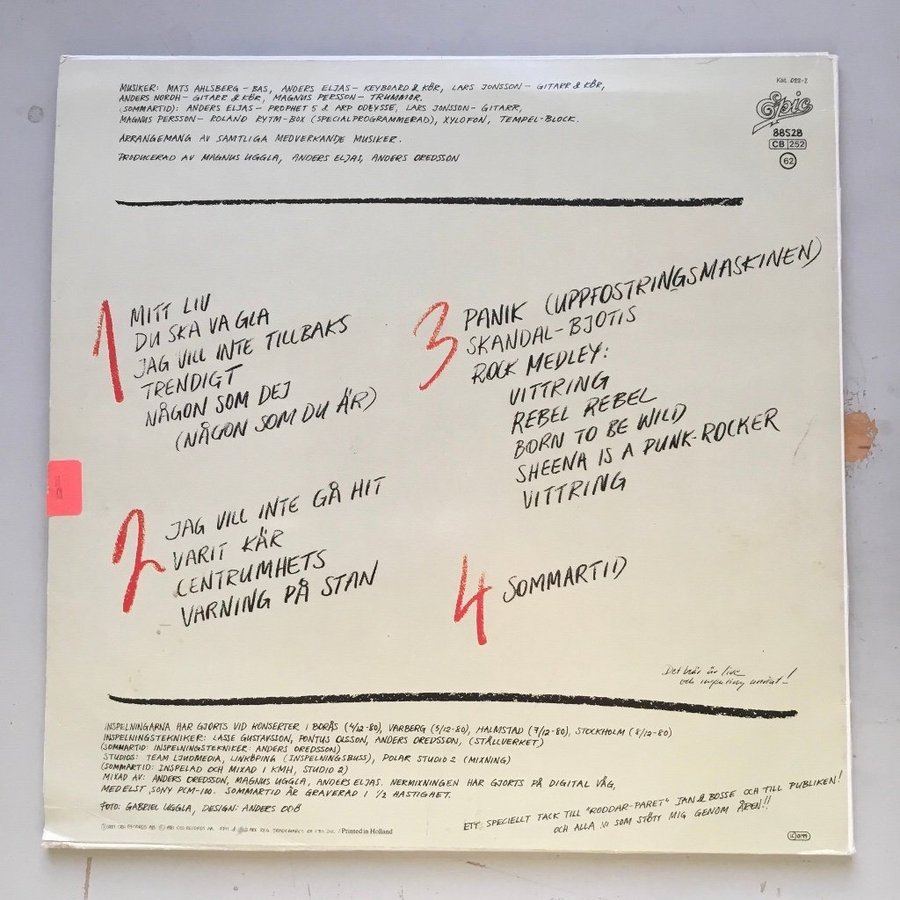 MUSIKER: MATS AHLSBERG – BAS, ANDERS ELJAS – KEYBOARD & KÖR, LARS JONSSON – GITARR & KÖR,
ANDERS NORDH – GITARR & KÖR, MAGNUS PERSSON – TRUMMOR.
(SOMMARTID): ANDERS ELJAS – PROPHET 5 & ARP ODEYSSE, LARS JONSSON – GITARR,
MAGNUS PERSSON – ROLAND RYTM-BOX (SPECIALPROGRAMMERAD), XYLOFON, TEMPEL-BLOCK.
ARRANGEMANG AV SAMTLIGA MEDVERKANDE MUSIKER.
PRODUCERAD AV MAGNUS UGGLA, ANDERS ELJAS, ANDERS OREDSSON
Kat. 022-2
Epic
88528
CB 252
62
1 MITT LIV
DU SKA VA GLA
JAG VILL INTE TILLBAKS
TRENDIGT
NÅGON SOM DEJ
(NÅGON SOM DU ÄR)
2 JAG VILL INTE GÅ HIT
VARIT KÄR
CENTRUMHETS
VARNING PÅ STAN
3 PANIK (UPPFOSTRINGSMASKINEN)
SKANDAL-BJOTIS
ROCK MEDLEY:
VITTRING
REBEL REBEL
BORN TO BE WILD
SHEENA IS A PUNK-ROCKER
VITTRING
4 SOMMARTID
Det här är live
och ingenting annat!
INSPELNINGARNA HAR GJORTS VID KONSERTER I BORÅS (4/12-80), VARBERG (5/12-80), HALMSTAD (7/12-80), STOCKHOLM (8/12-80)
INSPELNINGSTEKNIKER: LASSE GUSTAVSSON, PONTUS OLSSON, ANDERS OREDSSON, (STÅLLVERKET)
(SOMMARTID: INSPELNINGSTEKNIKER: ANDERS OREDSSON)
STUDIOS: TEAM LJUDMEDIA, LINKÖPING (INSPELNINGSBUSS), POLAR STUDIO 2 (MIXNING)
(SOMMARTID: INSPELAD OCH MIXAD I KMH, STUDIO 2)
MIXAD AV: ANDERS OREDSSON, MAGNUS UGGLA, ANDERS ELJAS. NERMIXNINGEN HAR GJORTS PÅ DIGITAL VÄG,
MEDELST SONY PCM-100. SOMMARTID ÄR GRAVERAD I 1/2 HASTIGHET.
FOTO: GABRIEL UGGLA, DESIGN: ANDERS DÖB
CBS RECORDS / Printed in Holland
ETT SPECIELLT TACK TILL "RODDAR-PARET" JAN & BOSSE OCH TILL PUBLIKEN!
OCH ALLA NI SOM STÖTT MIG GENOM ÅREN!!